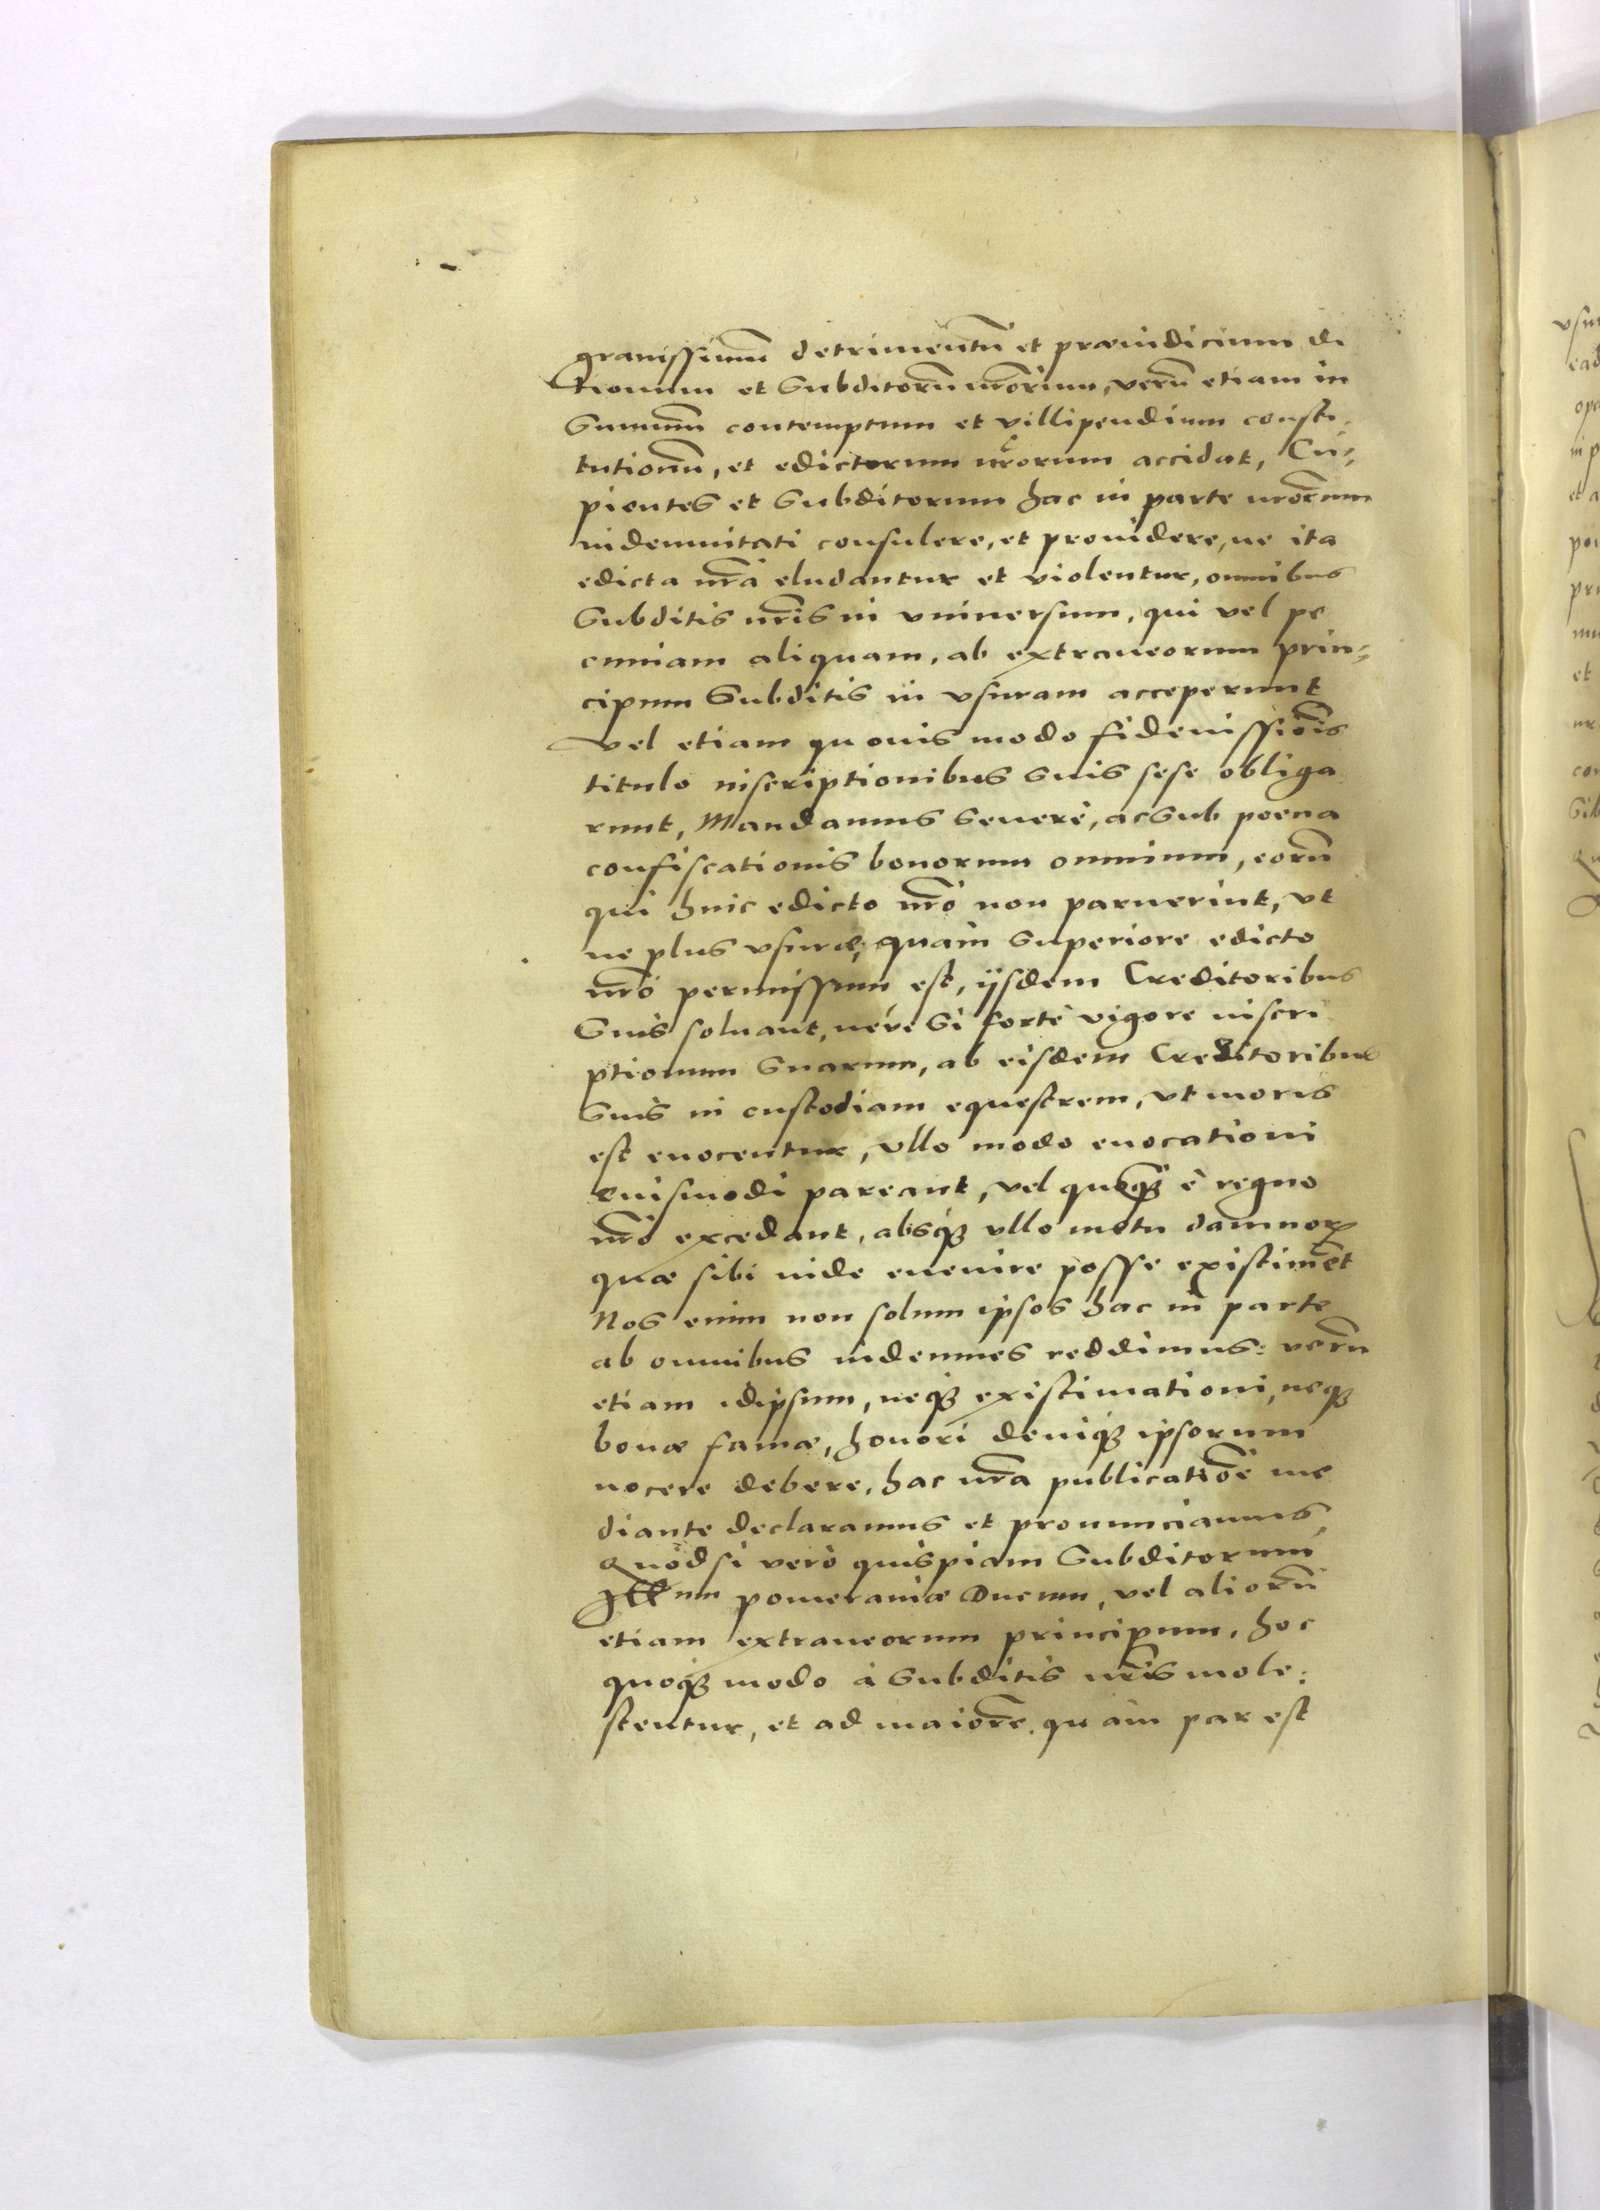 grauissimū detrimentū et præiudicium di
tionum et Subditorū nr̄orum, verū etiam in
Summū contemptum et villipendium consti-
tutionū, et edictorum nr̄orum accidat, Cu-
pientes et Subditorum hac in parte nr̄orum
indemnitati consulere, et prouidere, ne ita
edicta nr̄a eludantur et violentur, omnibus
Subditis nr̄is in vniuersum, qui vel pe
cuniam aliquam, ab extraneorum prin-
cipum Subditis in vsuram acceperunt
vel etiam quouis modo fideiussiōis
titulo inscriptionibus suis sese obliga
runt, Mandamus Seuerè, ac Sub poena
confiscationis bonorum omnium, eorū
qui huic edicto nr̄o non paruerint, vt
ne plus vsuræ, quàm Superiore edicto
nr̄o permissum est, ijsdem Creditoribus
Suis soluant, neue Si fortè vigore inscri
ptionum Suarum, ab eisdem Creditoribus
Suis in custodiam equestrem, vt moris
est euocentur, vllo modo euocationi
euismodi pareant, vel quoqȝ è regno
nr̄o excedant, absqȝ vllo metu damnorꝝ
quæ sibi inde euenire posse existimēt
Nos enim non solum ipsos hac in parte
ab omnibus indemnes reddimus: verū
etiam idipsum, neqȝ existimationi, neqȝ
bonæ famæ, honori deniqȝ ipsorum
nocere debere, hac nr̄a publicatiōe me
diante declaramus et pronunciamus,
Quòd si verò quispiam Subditorum
Illum pomeraniæ Ducum, vel aliorū
etiam extraneorum principum, hoc
quoqȝ modo à Subditis nr̄is mole:
stentur, et ad maiorē quàm par est